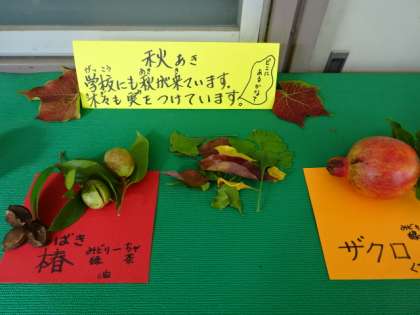 秋 あき
がっこう あき き
学校にも秋が来ています。
木々も実をつけています。
どこに
あるかな?
つばき
椿
みどり ちゃ
緑 ー 茶
油
ザクロ
みどり
緑